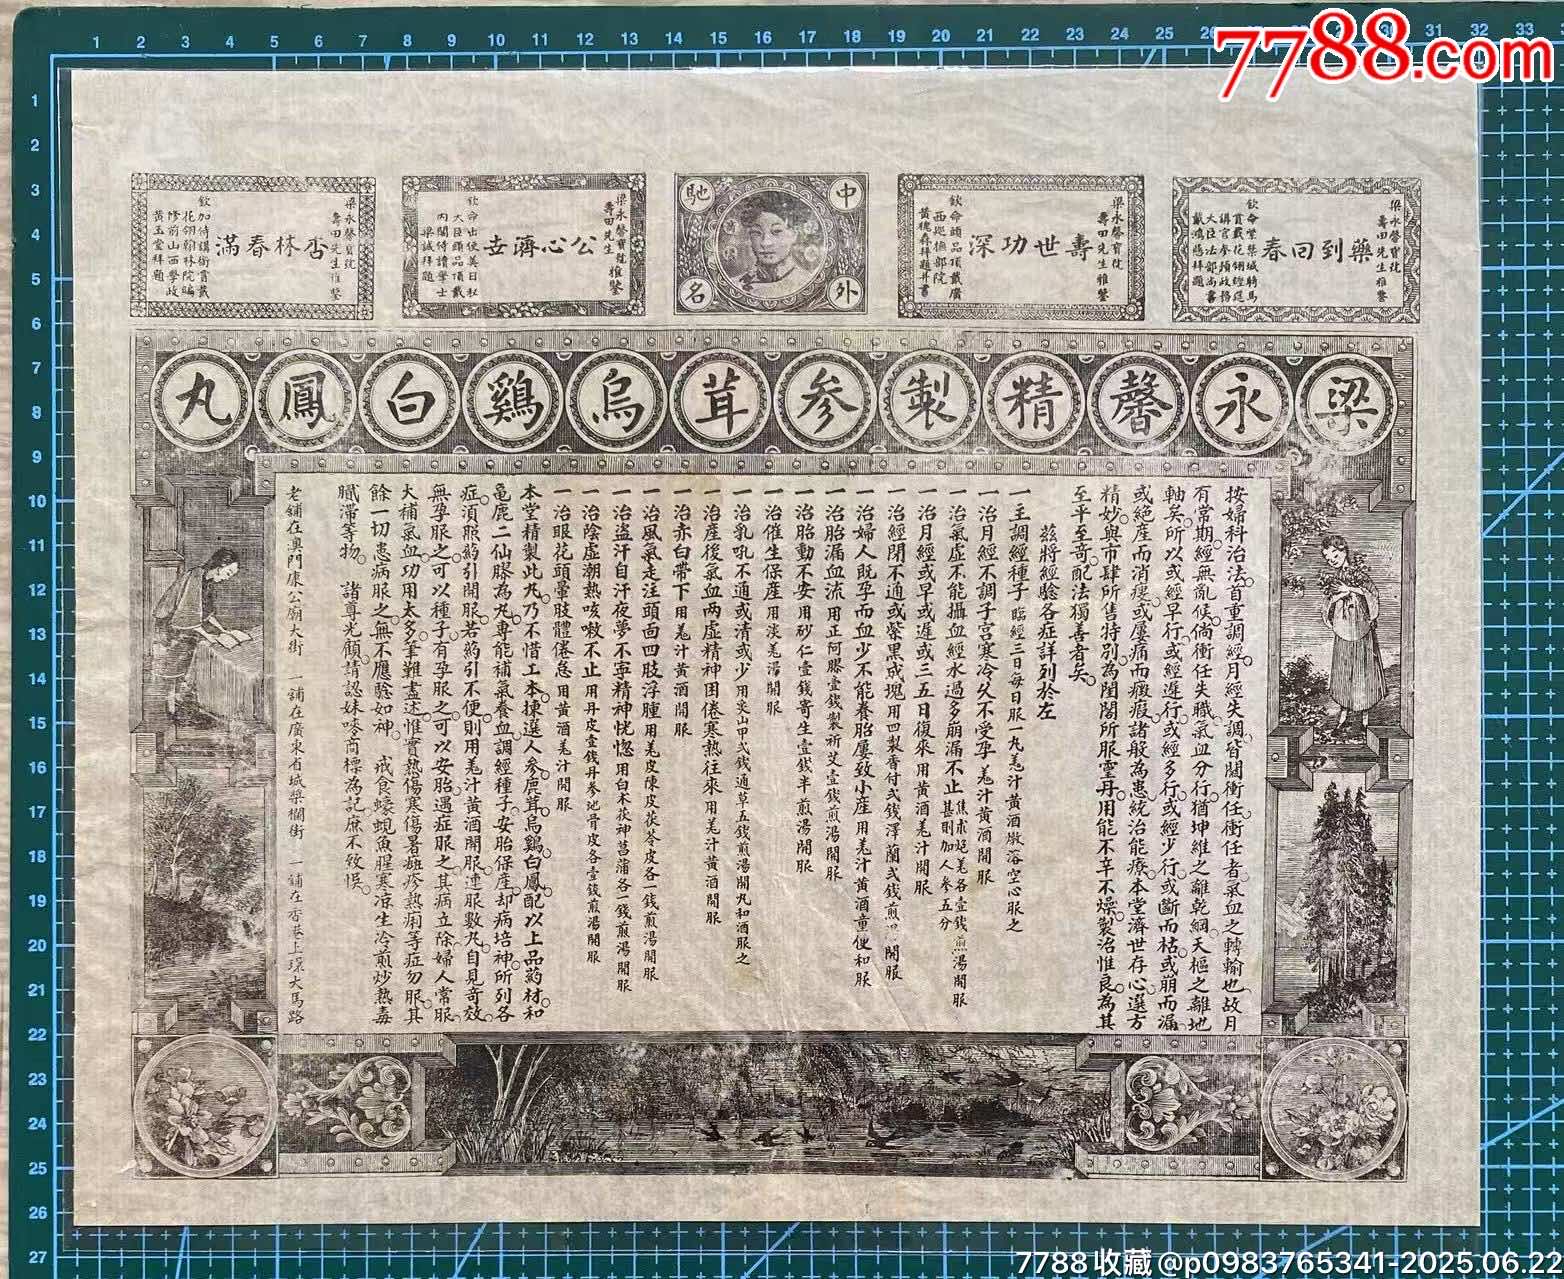 7788.com
梁永馨寶號
壽田先生雅鑒
藥到回春
欽命紫禁城騎馬
賞戴花翎經筵
講官參預政務
大臣法部尚書
戴鴻慈拜題
梁永馨寶號
壽田先生雅鑒
壽世功深
欽命頭品頂戴廣
西巡撫部院
黃槐森拜題并書
中外馳名
梁永馨寶號
壽田先生雅鑒
公心濟世
欽命出使英日秘
大臣頭品頂戴
內閣侍讀學士
梁誠拜題
梁永馨寶號
壽田先生雅鑒
杏林春滿
欽加侍講銜賞戴
花翎翰林院編
修前山西學政
黃玉堂拜題
梁永馨精製參茸烏鷄白鳳丸
按婦科治法首重調經月經失調皆關衝任衝任者氣血之轉輸也故月
有常期經無亂候倘衝任失職氣血分行猶坤維之離乾綱天樞之離地
軸矣所以或經早行或經遲行或經多行或經少行或斷而枯或崩而漏
或絕產而消瘦或屢痛而癥瘕諸般為患統治能療本堂濟世存心選方
精妙與市肆所售特别為閨閤所服靈丹用能不辛不燥製治惟良為其
至平至奇配法獨善者矣
茲將經驗各症詳列於左
一主調經種子臨經三日每日服一丸羌汁黃酒燉落空心服之
一治月經不調子宮寒冷久不受孕羌汁黃酒開服
一治氣虛不能攝血經水過多崩漏不止焦朮炙羌各壹錢煎湯開服甚則加人參五分
一治月經或早或遲或三五日復來用黃酒羌汁開服
一治經閉不通或紫黑成塊用四製香付弍錢澤蘭弍錢煎湯開服
一治婦人既孕而血少不能養胎屢致小產用羌汁黃酒童便和服
一治胎漏血流用正阿膠壹錢製祈艾壹錢煎湯開服
一治胎動不安用砂仁壹錢寄生壹錢半煎湯開服
一治催生保產用淡羌湯開服
一治乳吼不通或清或少用炙山甲弍錢通草五錢煎湯開丸和酒服之
一治產後氣血兩虛精神困倦寒熱往來用羌汁黃酒開服
一治赤白帶下用羌汁黃酒開服
一治風氣走注頭面四肢浮腫用羌皮陳皮茯苓皮各一錢煎湯開服
一治盜汗自汗夜夢不寧精神恍惚用白朮茯神菖蒲各一錢煎湯開服
一治陰虛潮熱咳嗽不止用丹皮壹錢丹參地骨皮各壹錢煎湯開服
一治眼花頭暈肢體倦怠用黃酒羌汁開服
本堂精製此丸乃不惜工本揀選人參鹿茸烏鷄白鳳配以上品葯材和
龜鹿二仙膠為丸專能補氣養血調經種子安胎保產却病培神所列各
症須照葯引開服若葯引不便則用羌汁黃酒開服連服數丸自見奇效
無孕服之可以種子有孕服之可以安胎遇症服之其病立除婦人常服
大補氣血功用太多筆難盡述惟實熱傷寒傷暑痲疹熱痢等症勿服其
餘一切患病服之無不應驗如神 戒食蠔蜆魚腥寒凉生冷煎炒熱毒
膩滯等物 諸尊光顧請認妹嘜商標為記庶不致悞
老鋪在澳門康公廟大街 一鋪在廣東省城槳欄街 一鋪在香港上環大馬路
7788收藏@p0983765341-2025.06.22